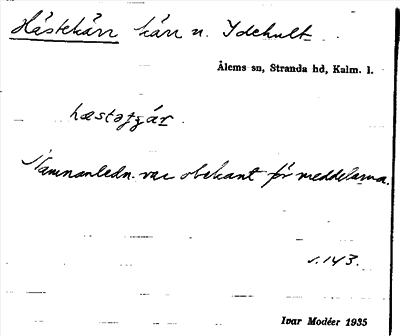 Hästekärr kärr n. Ydekult
Ålems sn, Stranda hd, Kalm. l.
Namnanledn. var obekant för meddelarna.
s. 143.
Ivar Modéer 1935